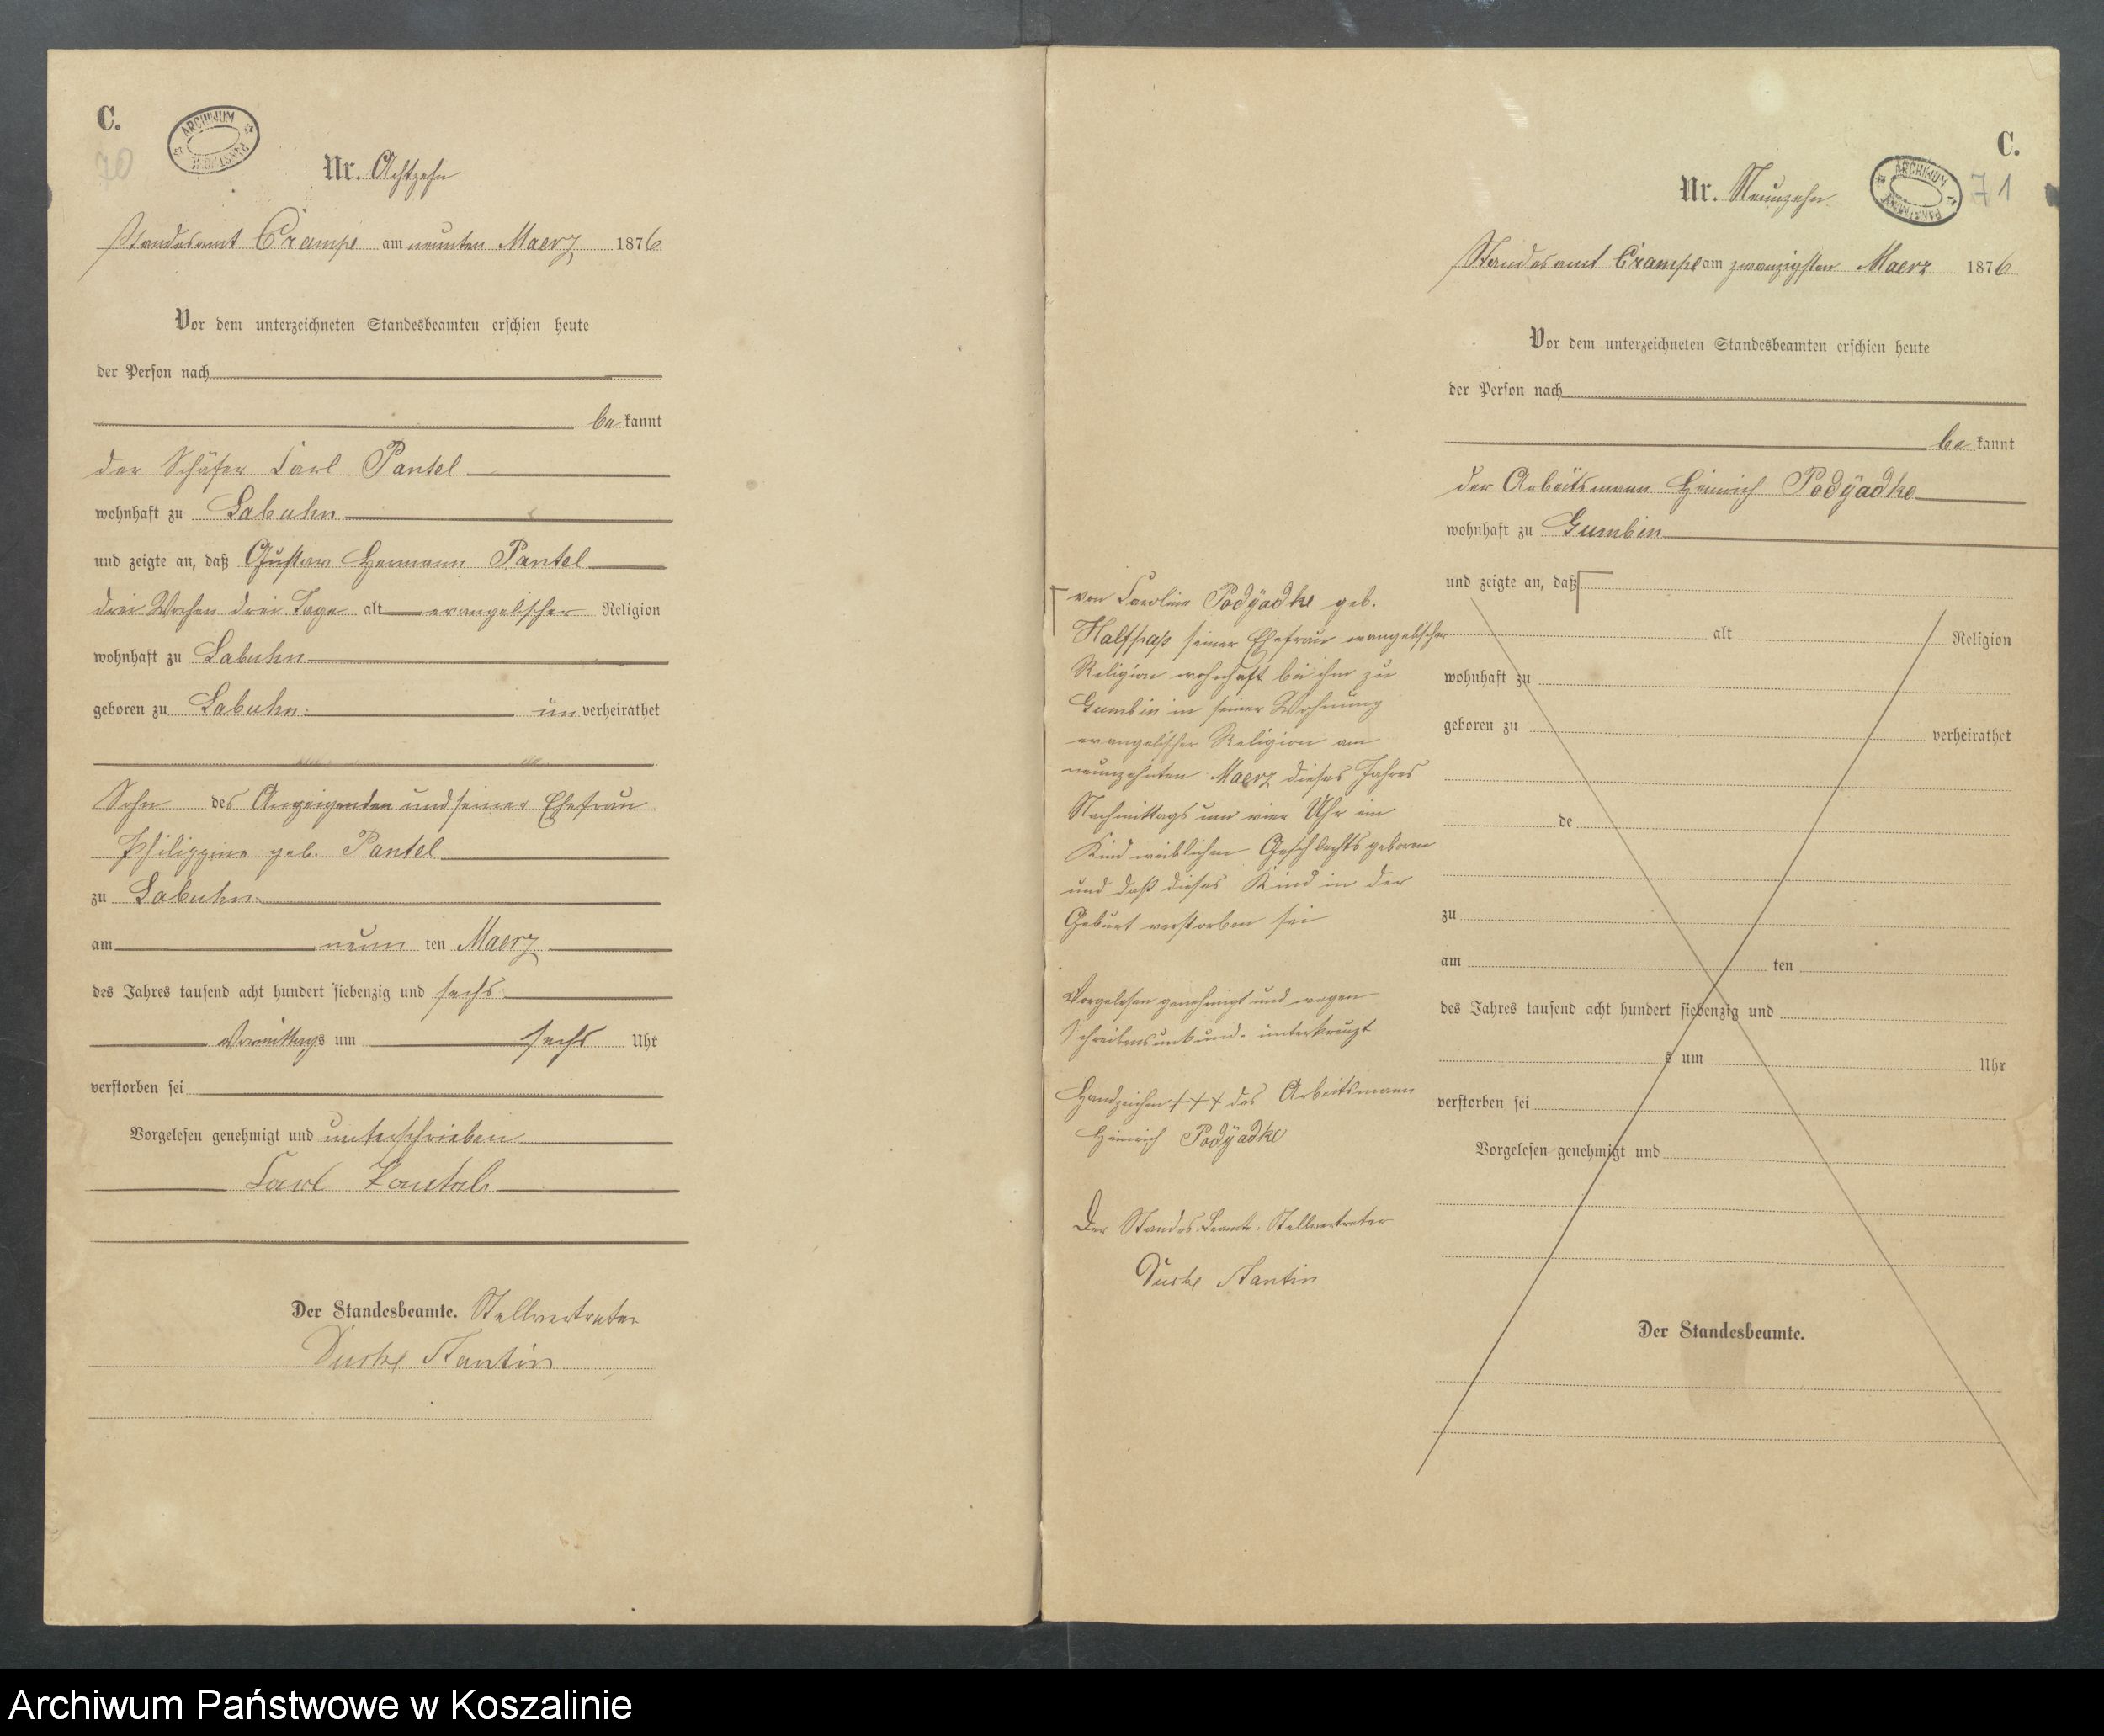 C.
70
ARCHIWUM PAŃSTWOWE
Nr. Achtzehn
Standesamt Crampe am neunten Maerz 1876
Vor dem unterzeichneten Standesbeamten erschien heute
der Person nach
be kannt
der Schäfer Carl Pantel
wohnhaft zu Labuhn
und zeigte an, daß Gustav Hermann Pantel
drei Wochen drei Tage alt evangelischer Religion
wohnhaft zu Labuhn
geboren zu Labuhn un verheirathet
Sohn des Anzeigenden und seiner Ehefrau
Philippine geb. Pantel
zu Labuhn
am neun ten Maerz
des Jahres tausend acht hundert siebenzig und sechs
Vormittags um sechs Uhr
verstorben sei
Vorgelesen genehmigt und unterschrieben
Carl Pantel
Der Standesbeamte. Stellvertreter
C.
71
ARCHIWUM PAŃSTWOWE
Nr. Neunzehn
Standesamt Crampe am zwanzigsten Maerz 1876
Vor dem unterzeichneten Standesbeamten erschien heute
der Person nach
be kannt
der Arbeitsmann Heinrich Podÿadke
wohnhaft zu Gumbin
und zeigte an, daß
alt Religion
wohnhaft zu
geboren zu
verheirathet
de
zu
am ten
des Jahres tausend acht hundert siebenzig und
s um Uhr
verstorben sei
Vorgelesen genehmigt und
Der Standesbeamte.
von Caroline Podÿadke geb.
Halfpap seiner Ehefrau evangelischer
Religion wohnhaft bei ihm zu
Gumbin in seiner Wohnung
evangelischer Religion am
neunzehnten Maerz dieses Jahres
Nachmittags um vier Uhr ein
Kind weiblichen Geschlechts geboren
und daß dieses Kind in der
Geburt verstorben sei
Vorgelesen genehmigt und wegen
Schreibensunkund. unterkreuzt
Handzeichen +++ des Arbeitsmann
Heinrich Podÿadke
Der Standes-Beamte. Stellvertreter
Archiwum Państwowe w Koszalinie